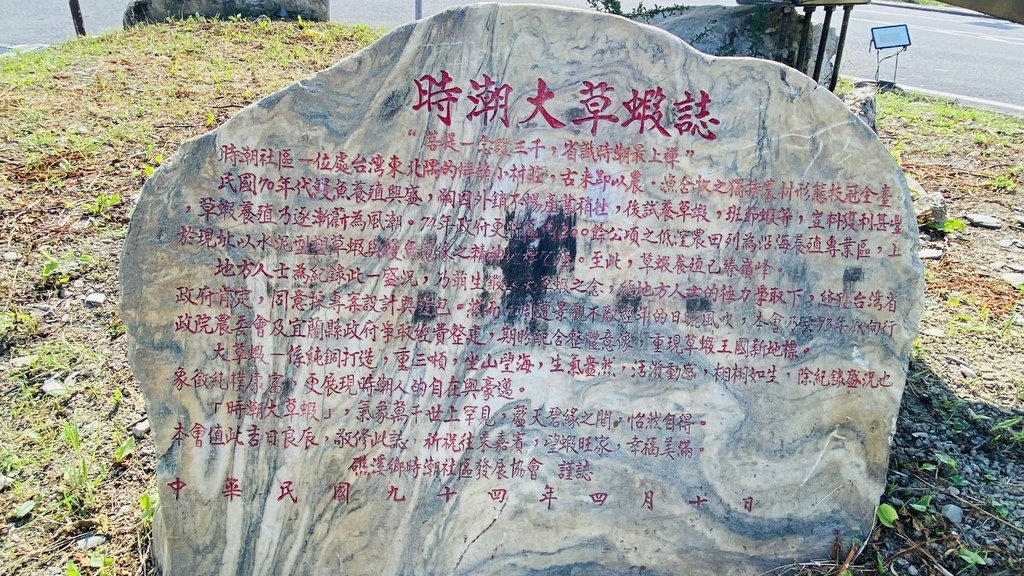 時潮大草蝦誌
"菩提一念證三千，省識時潮最上禪"
時潮社區一位處台灣東北隅的傍海小村莊，古來即以農、漁合牧之獨特農村形態技冠全臺，
民國70年代鰻魚養殖興盛，嗣因外銷不暢產業頓挫，後試養草蝦，班節蝦等，豈料獲利甚豐
，草蝦養殖乃逐漸蔚為風潮。74年政府更將 200餘公頃之低窪農田列為沿海養殖專業區，上
於現址以水泥 草蝦與鰻魚 之精神 。至此，草蝦養殖已臻嶺峰。
地方人士為紀錄此一盛況，乃萌生 大草蝦之念，
政府肯定，同意 專案設計與 。然 週邊景觀不敵經年的日曬風吹，本會乃於93年 向行
政院農委會及宜蘭縣政府爭取經費整建，期盼能合整體意象，重現草蝦王國新地標。
大草蝦一係純銅打造，重三頓，坐山望海，生氣盎然，活潑動感，栩栩如生，除紀錄盛況也
象徵 ，更展現時潮人的自在與豪邁。
「時潮大草蝦」，氣象萬千世上罕見，藍天碧綠之間，怡然自得。
本會值此吉日良辰，敬修此誌，祈祝往來嘉賓，望蝦旺家，幸福美滿。
礁溪鄉時潮社區發展協會 謹誌
中華民國九十四年四月十日